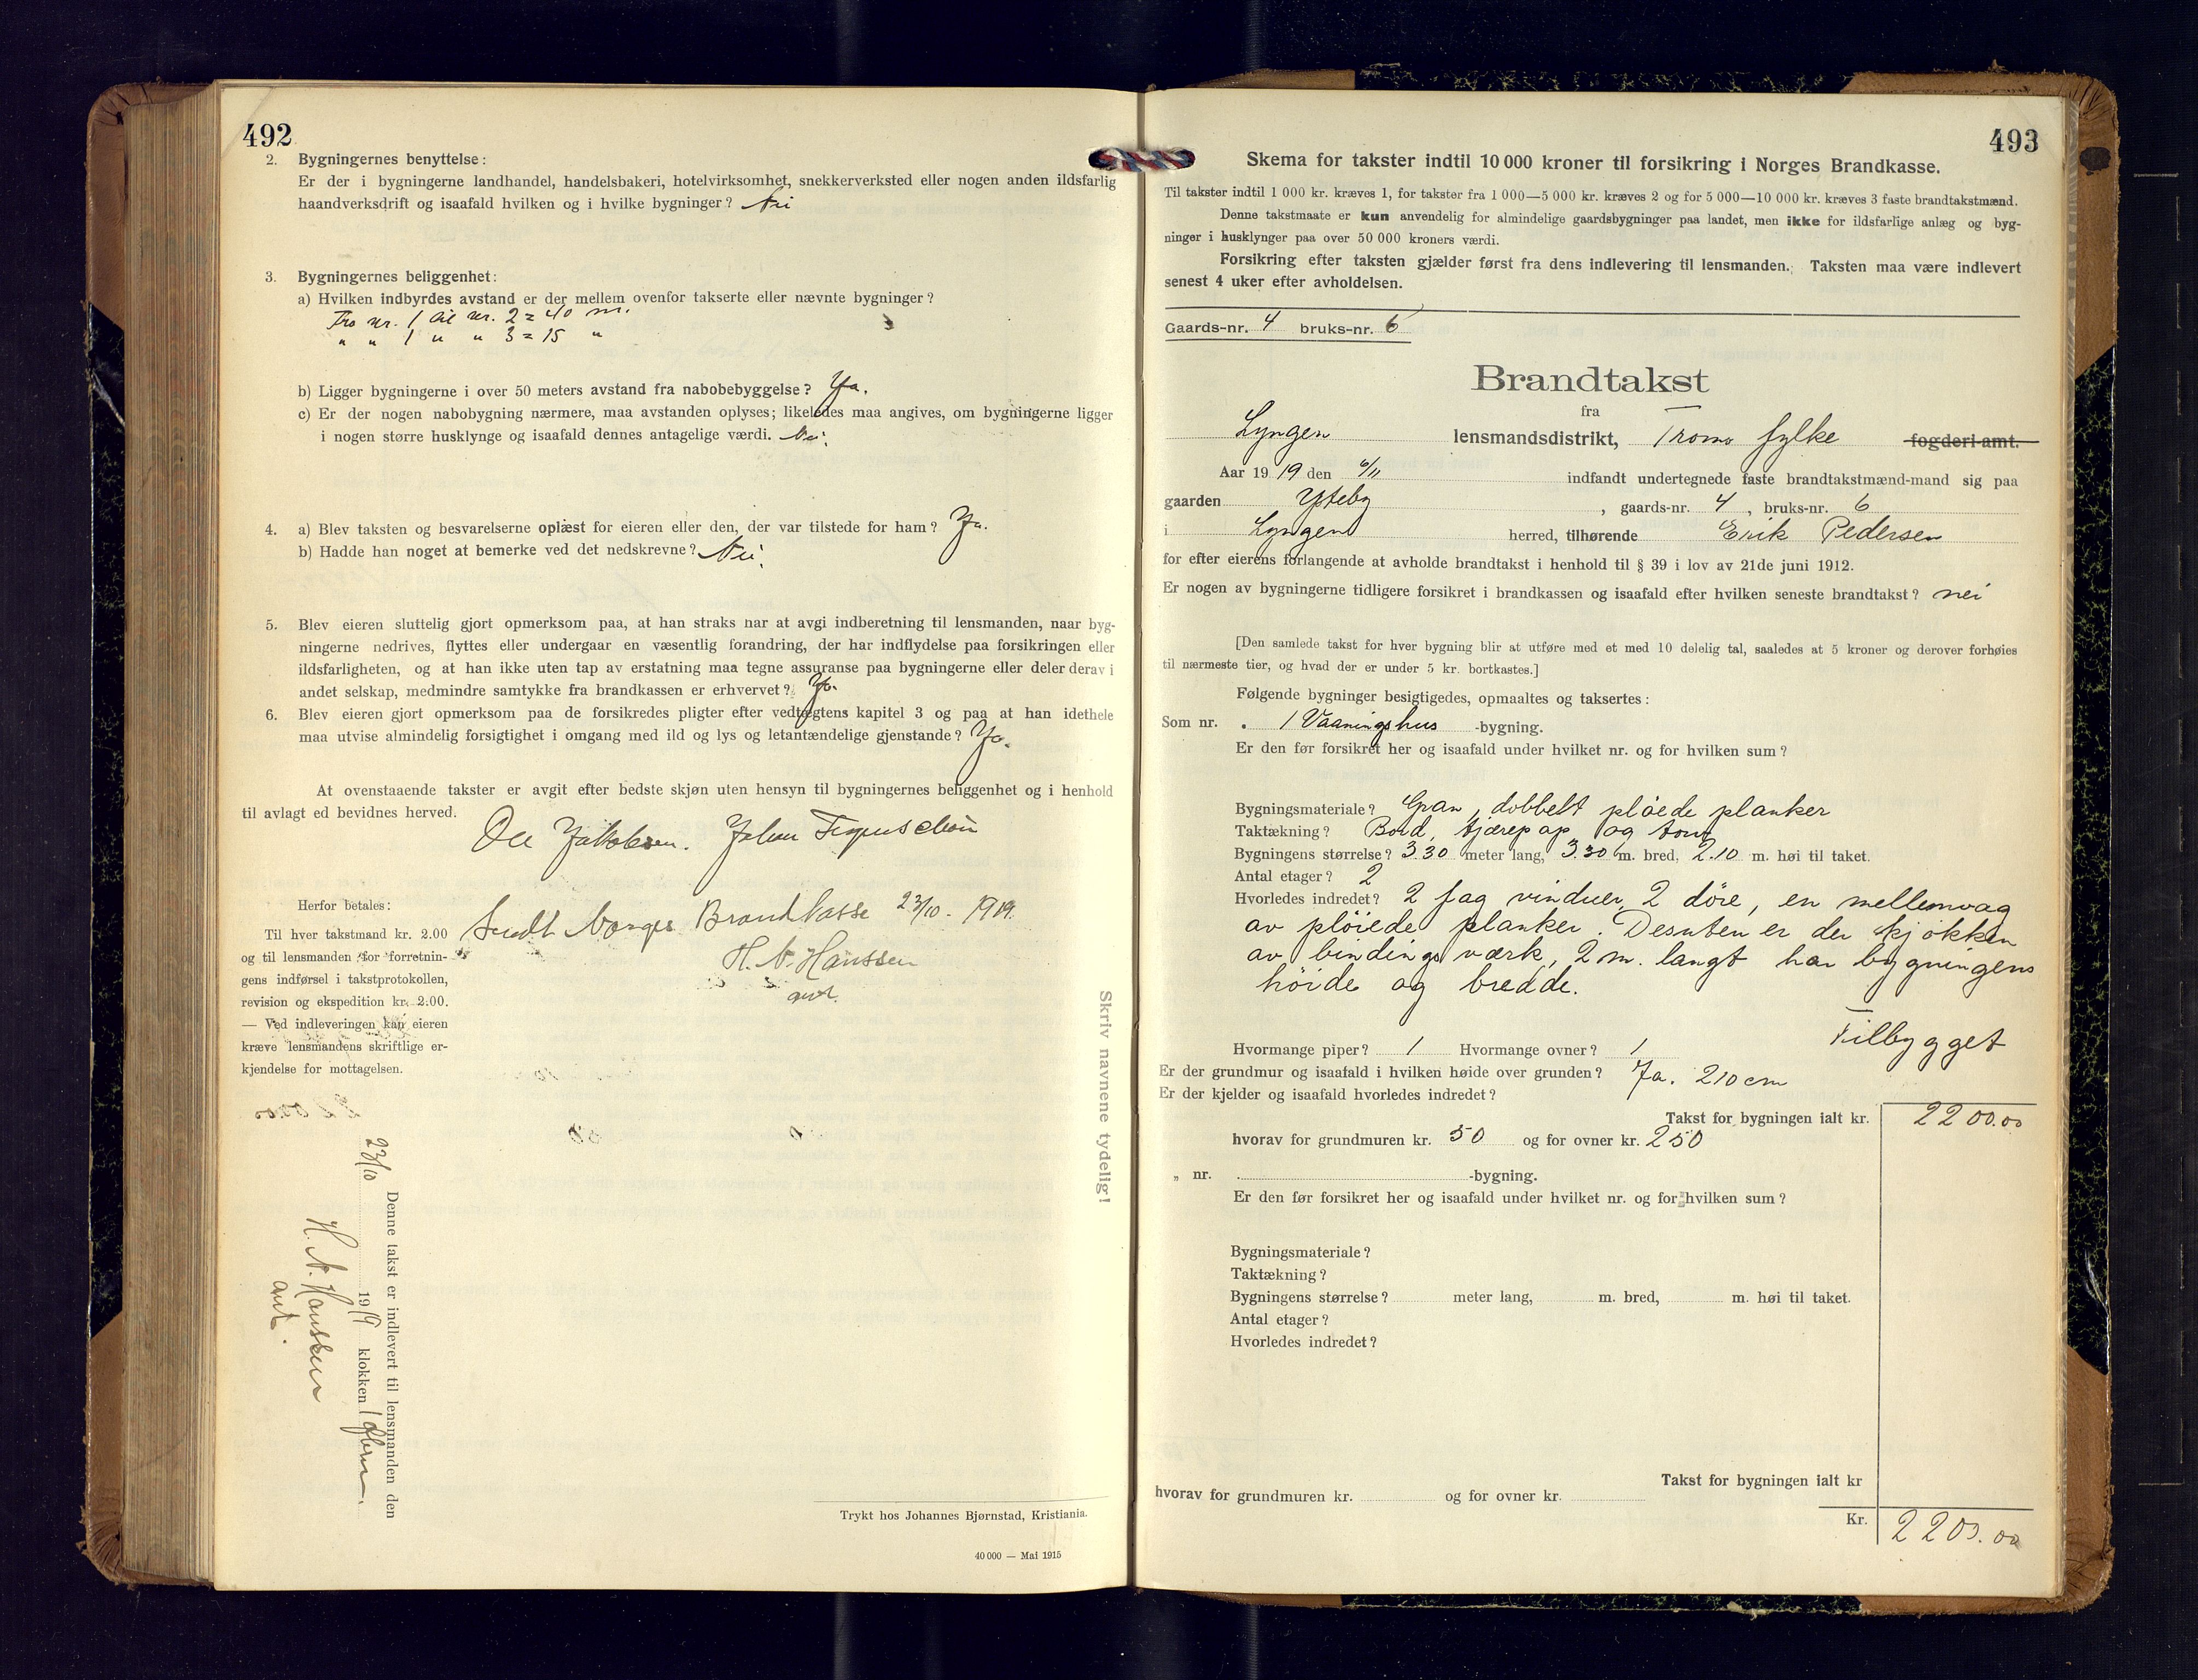 492
2. Bygningernes benyttelse:
Er der i bygningerne landhandel, handelsbakeri, hotelvirksomhet, snekkerverksted eller nogen anden ildsfarlig
haandverksdrift og isaafald hvilken og i hvilke bygninger? Nei
3. Bygningernes beliggenhet:
a) Hvilken indbyrdes avstand er der mellem ovenfor takserte eller nævnte bygninger?
Fra nr. 1 til nr. 2 = 40 m.
" " 1 " " 3 = 15 "
b) Ligger bygningerne i over 50 meters avstand fra nabobebyggelse? Ja.
c) Er der nogen nabobygning nærmere, maa avstanden oplyses; likeledes maa angives, om bygningerne ligger
i nogen større husklynge og isaafald dennes antagelige værdi. Nei.
4. a) Blev taksten og besvarelserne oplæst for eieren eller den, der var tilstede for ham? Ja.
b) Hadde han noget at bemerke ved det nedskrevne? Nei.
5. Blev eieren sluttelig gjort opmerksom paa, at han straks har at avgi indberetning til lensmanden, naar byg-
ningerne nedrives, flyttes eller undergaar en væsentlig forandring, der har indflydelse paa forsikringen eller
ildsfarligheten, og at han ikke uten tap av erstatning maa tegne assuranse paa bygningerne eller deler derav i
andet selskap, medmindre samtykke fra brandkassen er erhvervet? Ja.
6. Blev eieren gjort opmerksom paa de forsikredes pligter efter vedtægtens kapitel 3 og paa at han idethele
maa utvise almindelig forsigtighet i omgang med ild og lys og letantændelige gjenstande? Ja.
At ovenstaaende takster er avgit efter bedste skjøn uten hensyn til bygningernes beliggenhet og i henhold
til avlagt ed bevidnes herved.
Ole Jakobsen. Johan
Herfor betales:
Til hver takstmand kr. 2.00
og til lensmanden for forretnin-
gens indførsel i takstprotokollen,
revision og ekspedition kr. 2.00.
— Ved indleveringen kan eieren
kræve lensmandens skriftlige er-
kjendelse for mottagelsen.
Sendt Norges Brandkasse 23/10 - 1919.
H. N. Hanssen
aut.
Skriv navnene tydelig!
Denne takst er indlevert til lensmanden den
23/10 1919 klokken 1
H. N. Hanssen
aut.
Trykt hos Johannes Bjørnstad, Kristiania.
40 000 — Mai 1915
493
Skema for takster indtil 10 000 kroner til forsikring i Norges Brandkasse.
Til takster indtil 1 000 kr. kræves 1, for takster fra 1 000—5 000 kr. kræves 2 og for 5 000—10 000 kr. kræves 3 faste brandtakstmænd.
Denne takstmaate er kun anvendelig for almindelige gaardsbygninger paa landet, men ikke for ildsfarlige anlæg og byg-
ninger i husklynger paa over 50 000 kroners værdi.
Forsikring efter taksten gjælder først fra dens indlevering til lensmanden. Taksten maa være indlevert
senest 4 uker efter avholdelsen.
Gaards-nr. 4 bruks-nr. 6
Brandtakst
fra
Lyngen lensmandsdistrikt, Troms fylke fogderi-amt.
Aar 1919 den 6/11 indfandt undertegnede faste brandtakstmænd-mand sig paa
gaarden Yteby, gaards-nr. 4, bruks-nr. 6
i Lyngen herred, tilhørende Erik Pedersen
for efter eierens forlangende at avholde brandtakst i henhold til § 39 i lov av 21de juni 1912.
Er nogen av bygningerne tidligere forsikret i brandkassen og isaafald efter hvilken seneste brandtakst? nei
[Den samlede takst for hver bygning blir at utføre med et med 10 delelig tal, saaledes at 5 kroner og derover forhøies
til nærmeste tier, og hvad der er under 5 kr. bortkastes.]
Følgende bygninger besigtigedes, opmaaltes og taksertes:
Som nr. 1 Vaaningshus -bygning.
Er den før forsikret her og isaafald under hvilket nr. og for hvilken sum?
Bygningsmateriale? Gran, dobbelt pløede planker
Taktækning? Bord, tjærepap og torv
Bygningens størrelse? 3.30 meter lang, 3.30 m. bred, 2.10 m. høi til taket.
Antal etager? 2
Hvorledes indredet? 2 fag vinduer, 2 döre, en mellemvæg
av plöiede planker. Desuten er der kjökken
av bindingsværk, 2 m. langt har bygningens
höide og bredde.
Tilbygget
Hvormange piper? 1 Hvormange ovner? 1
Er der grundmur og isaafald i hvilken høide over grunden? Ja. 210 cm
Er der kjelder og isaafald hvorledes indredet?
Takst for bygningen ialt kr. 2200.00
hvorav for grundmuren kr. 50 og for ovner kr. 250
„ nr. -bygning.
Er den før forsikret her og isaafald under hvilket nr. og for hvilken sum?
Bygningsmateriale?
Taktækning?
Bygningens størrelse? meter lang, m. bred, m. høi til taket.
Antal etager?
Hvorledes indredet?
Takst for bygningen ialt kr
hvorav for grundmuren kr. og for ovner kr.
Kr. 2200.00